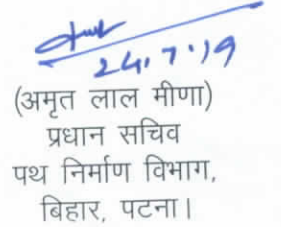 24.7.19
(अमृत लाल मीणा)
प्रधान सचिव
पथ निर्माण विभाग,
बिहार, पटना।